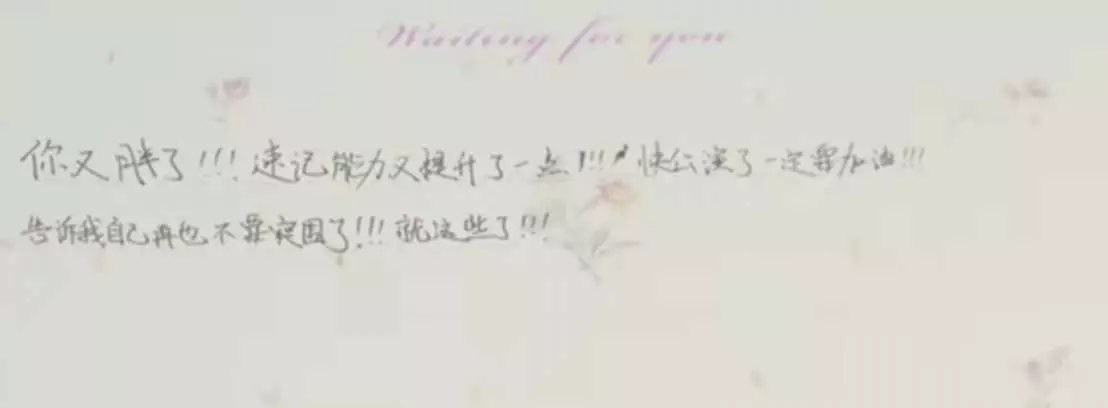 Waiting for you
你又胖了!!!速记能力又提升了一点!!!!快公演了一定要加油!!!
告诉我自己再也不要突围了!!!就这些了!!!